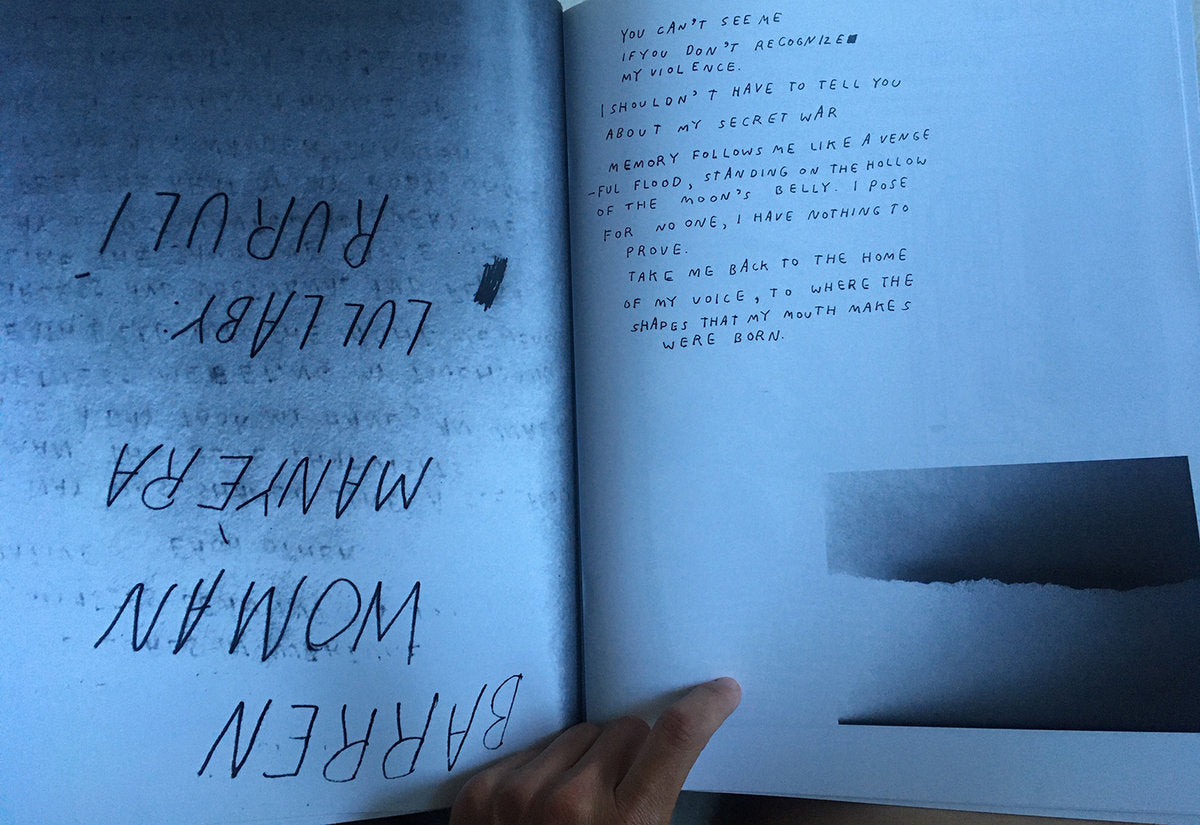 BARREN
WOMAN
MANYÈRA
LULLABY
RURULI
YOU CAN'T SEE ME
IF YOU DON'T RECOGNIZE
MY VIOLENCE.
I SHOULDN'T HAVE TO TELL YOU
ABOUT MY SECRET WAR
MEMORY FOLLOWS ME LIKE A VENGE
-FUL FLOOD, STANDING ON THE HOLLOW
OF THE MOON'S BELLY. I POSE
FOR NO ONE, I HAVE NOTHING TO
PROVE.
TAKE ME BACK TO THE HOME
OF MY VOICE, TO WHERE THE
SHAPES THAT MY MOUTH MAKES
WERE BORN.